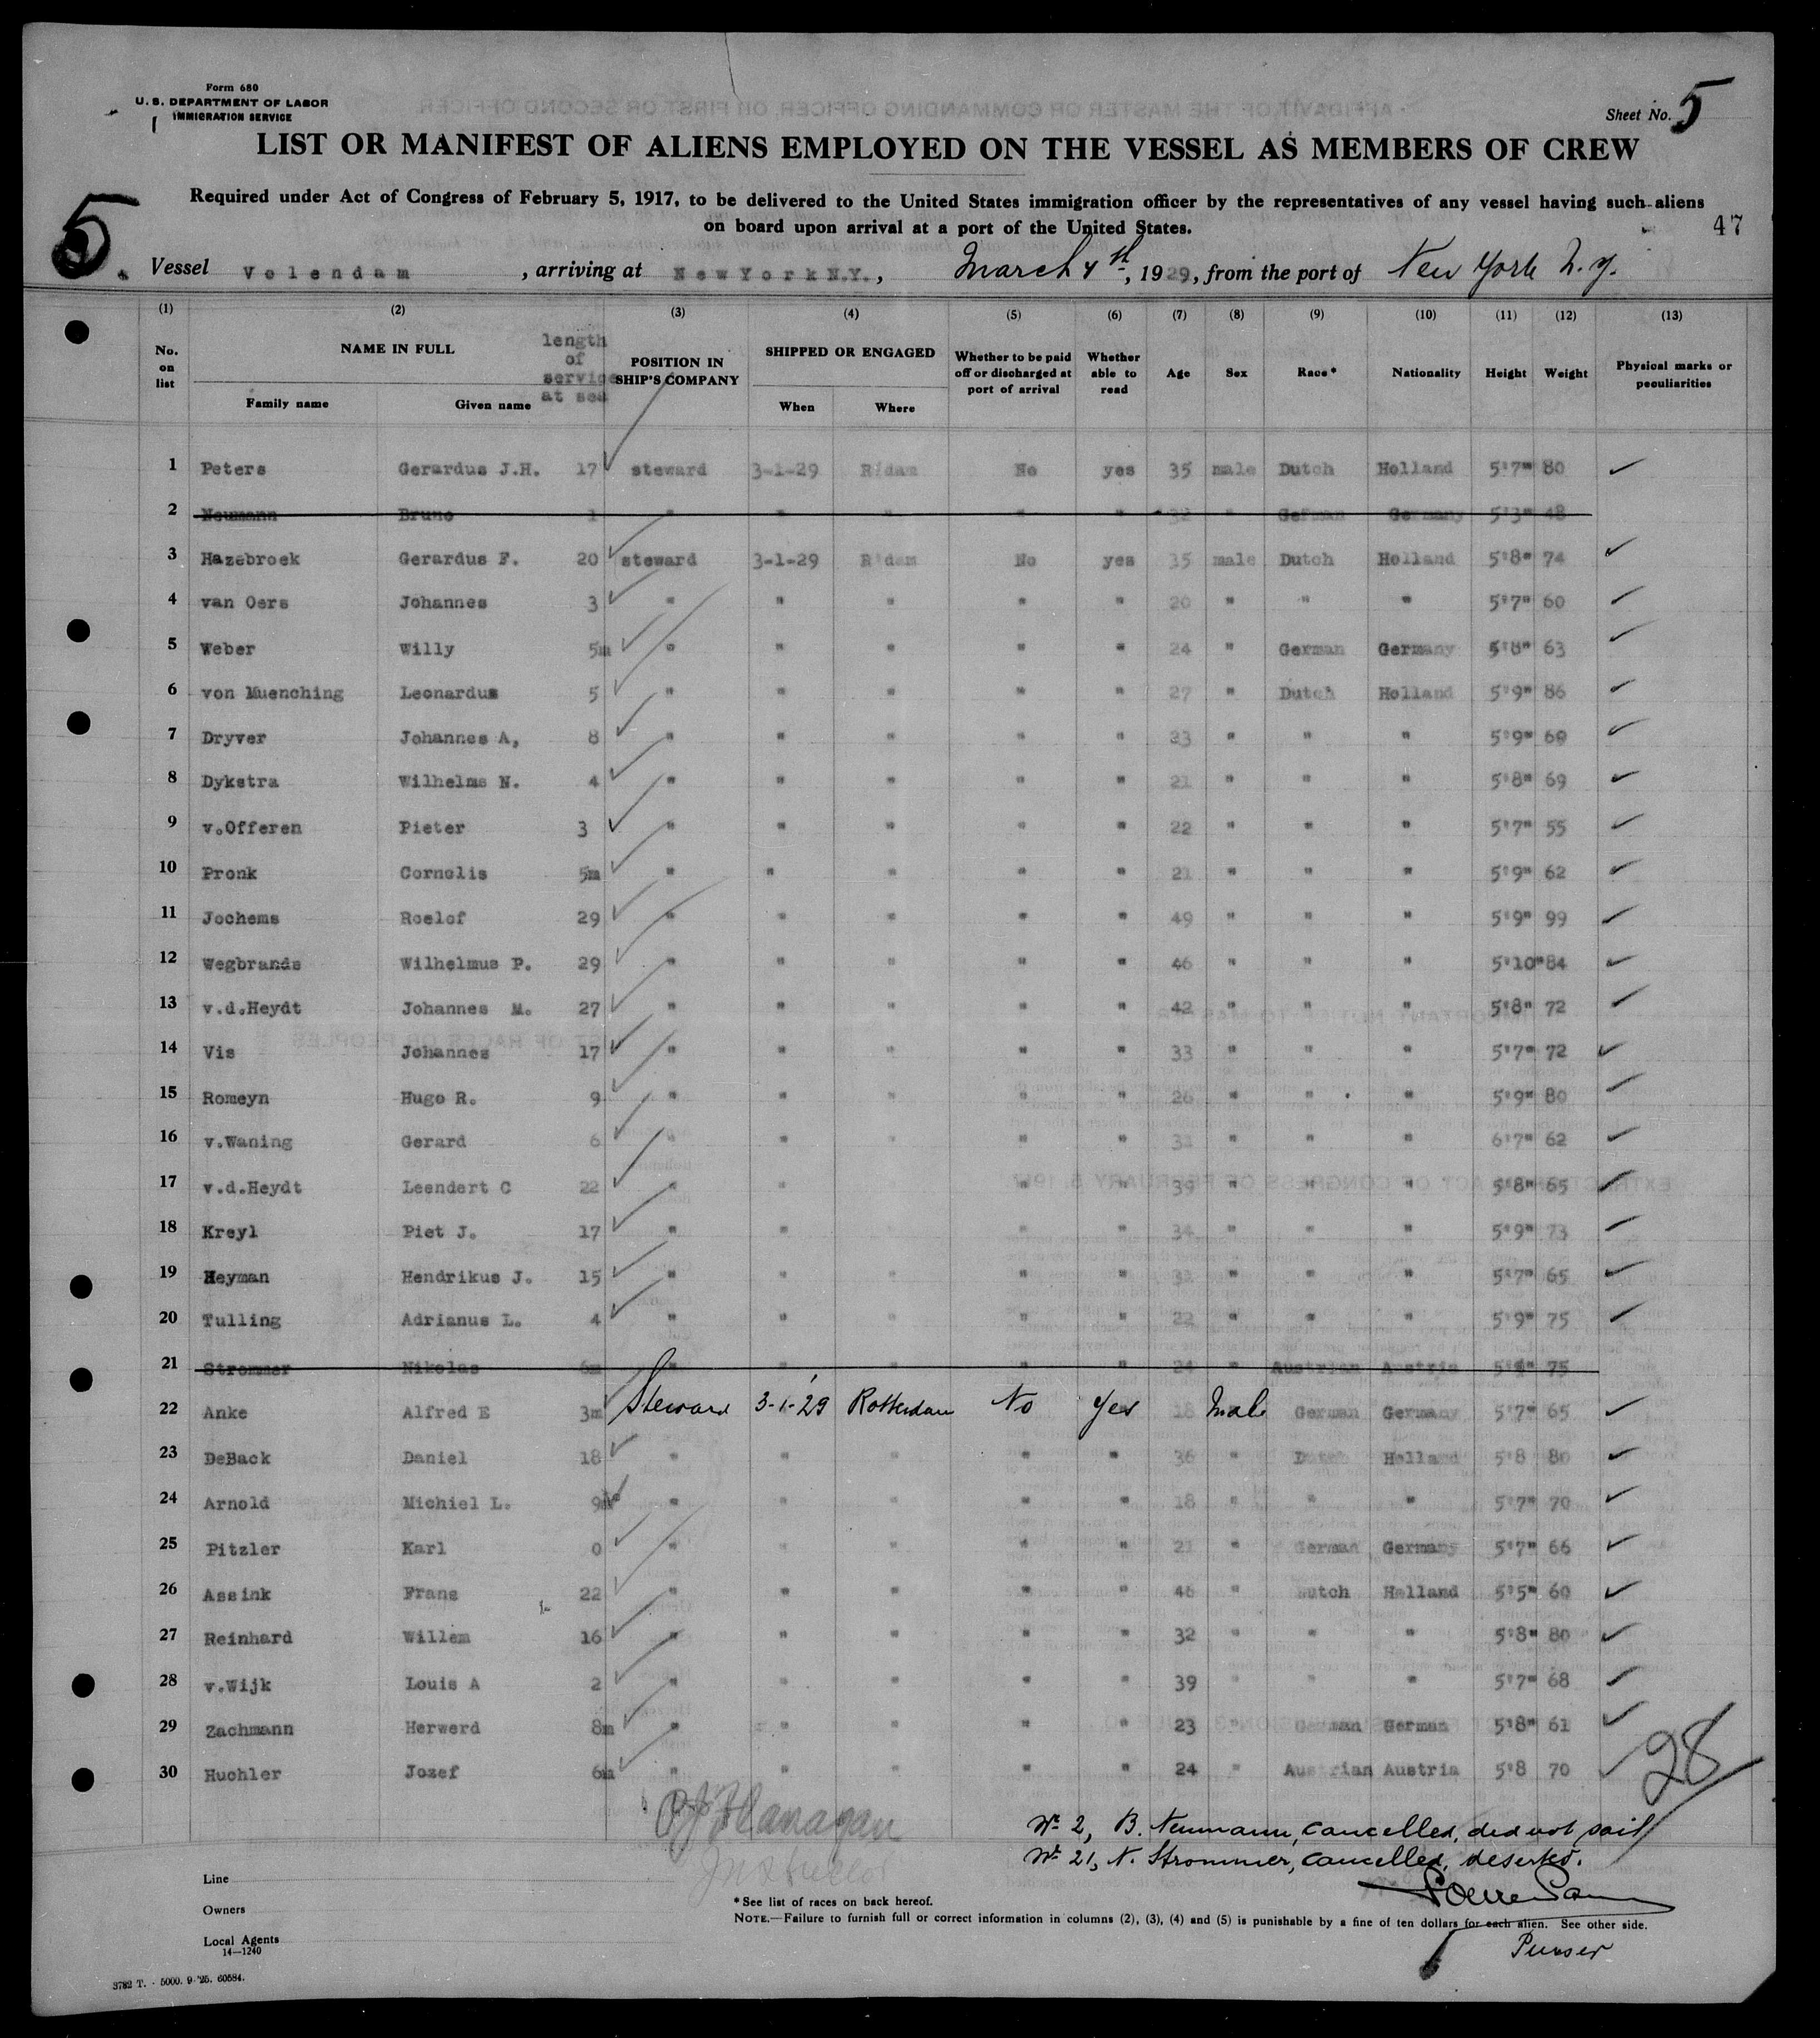 Form 680
U. S. DEPARTMENT OF LABOR
IMMIGRATION SERVICE
Sheet No. 5
LIST OR MANIFEST OF ALIENS EMPLOYED ON THE VESSEL AS MEMBERS OF CREW
Required under Act of Congress of February 5, 1917, to be delivered to the United States immigration officer by the representatives of any vessel having such aliens
on board upon arrival at a port of the United States.
47
5
Vessel Volendam, arriving at New York N.Y., March 4th, 1929, from the port of New York N.Y.
(1) (2) (3) (4) (5) (6) (7) (8) (9) (10) (11) (12) (13)
No. on list NAME IN FULL Family name Given name length of service at sea POSITION IN SHIP'S COMPANY SHIPPED OR ENGAGED When Where Whether to be paid off or discharged at port of arrival Whether able to read Age Sex Race* Nationality Height Weight Physical marks or peculiarities
1 Peters Gerardus J.H. 17 steward 3-1-29 R'dam No yes 35 male Dutch Holland 5'7" 80 ✓
2 Neumann Bruno 1 " " " " " 32 " German Germany 5'3" 48
3 Hazebroek Gerardus F. 20 steward 3-1-29 R'dam No yes 35 male Dutch Holland 5'8" 74 ✓
4 van Oers Johannes 3 " " " " " 20 " " " 5'7" 60 ✓
5 Weber Willy 5m " " " " " 24 " German Germany 5'8" 63 ✓
6 von Muenching Leonardus 5 " " " " " 27 " Dutch Holland 5'9" 86 ✓
7 Dryver Johannes A, 8 " " " " " 23 " " " 5'9" 69 ✓
8 Dykstra Wilhelms N. 4 " " " " " 21 " " " 5'8" 69 ✓
9 v.Offeren Pieter 3 " " " " " 22 " " " 5'7" 55 ✓
10 Pronk Cornelis 5m " " " " " 21 " " " 5'9" 62 ✓
11 Jochems Roelof 29 " " " " " 49 " " " 5'9" 99 ✓
12 Wegbrands Wilhelmus P. 29 " " " " " 46 " " " 5'10" 84 ✓
13 v.d.Heydt Johannes M. 27 " " " " " 42 " " " 5'8" 72 ✓
14 Vis Johannes 17 " " " " " 33 " " " 5'7" 72 ✓
15 Romeyn Hugo R. 9 " " " " " 26 " " " 5'9" 80 ✓
16 v.Waning Gerard 6 " " " " " " " " 6'7" 62 ✓
17 v.d.Heydt Leendert C 22 " " " " " 39 " " " 5'8" 65 ✓
18 Kreyl Piet J. 17 " " " " " 34 " " " 5'9" 73 ✓
19 Heyman Hendrikus J. 15 " " " " " " " " 5'7" 65 ✓
20 Tulling Adrianus L. 4 " " " " " 22 " " " 5'9" 75 ✓
21 Strommer Nikolas 6m " " " " " 24 " Austrian Austria 75
22 Anke Alfred E 3m Steward 3-1-29 Rotterdam No Yes 18 Male German Germany 5'7" 65 ✓
23 DeBack Daniel 18 " " " " " 36 " Dutch Holland 5'8 80 ✓
24 Arnold Michiel L. 9m " " " " " 18 " " " 5'7" 70 ✓
25 Pitzler Karl 0 " " " " " 21 " German Germany 5'7" 66 ✓
26 Assink Frans 22 " " " " " 46 " Dutch Holland 5'5" 60 ✓
27 Reinhard Willem 16 " " " " " 32 " " " 5'8" 80 ✓
28 v.Wijk Louis A 2 " " " " " 39 " " " 5'7" 68 ✓
29 Zachmann Herwerd 8m " " " " " 23 " German German 5'8" 61 ✓
30 Huchler Jozef 6m " " " " " 24 " Austrian Austria 5'8 70 ✓
28
P J Flanagan
No 2, B. Neumann, cancelled, did not sail
No 21, N. Strommer, cancelled, deserted.
Purser
Line
Owners
Local Agents
14—1240
*See list of races on back hereof.
NOTE.—Failure to furnish full or correct information in columns (2), (3), (4) and (5) is punishable by a fine of ten dollars for each alien. See other side.
3782 T. - 5000. 9-'25. 60584.